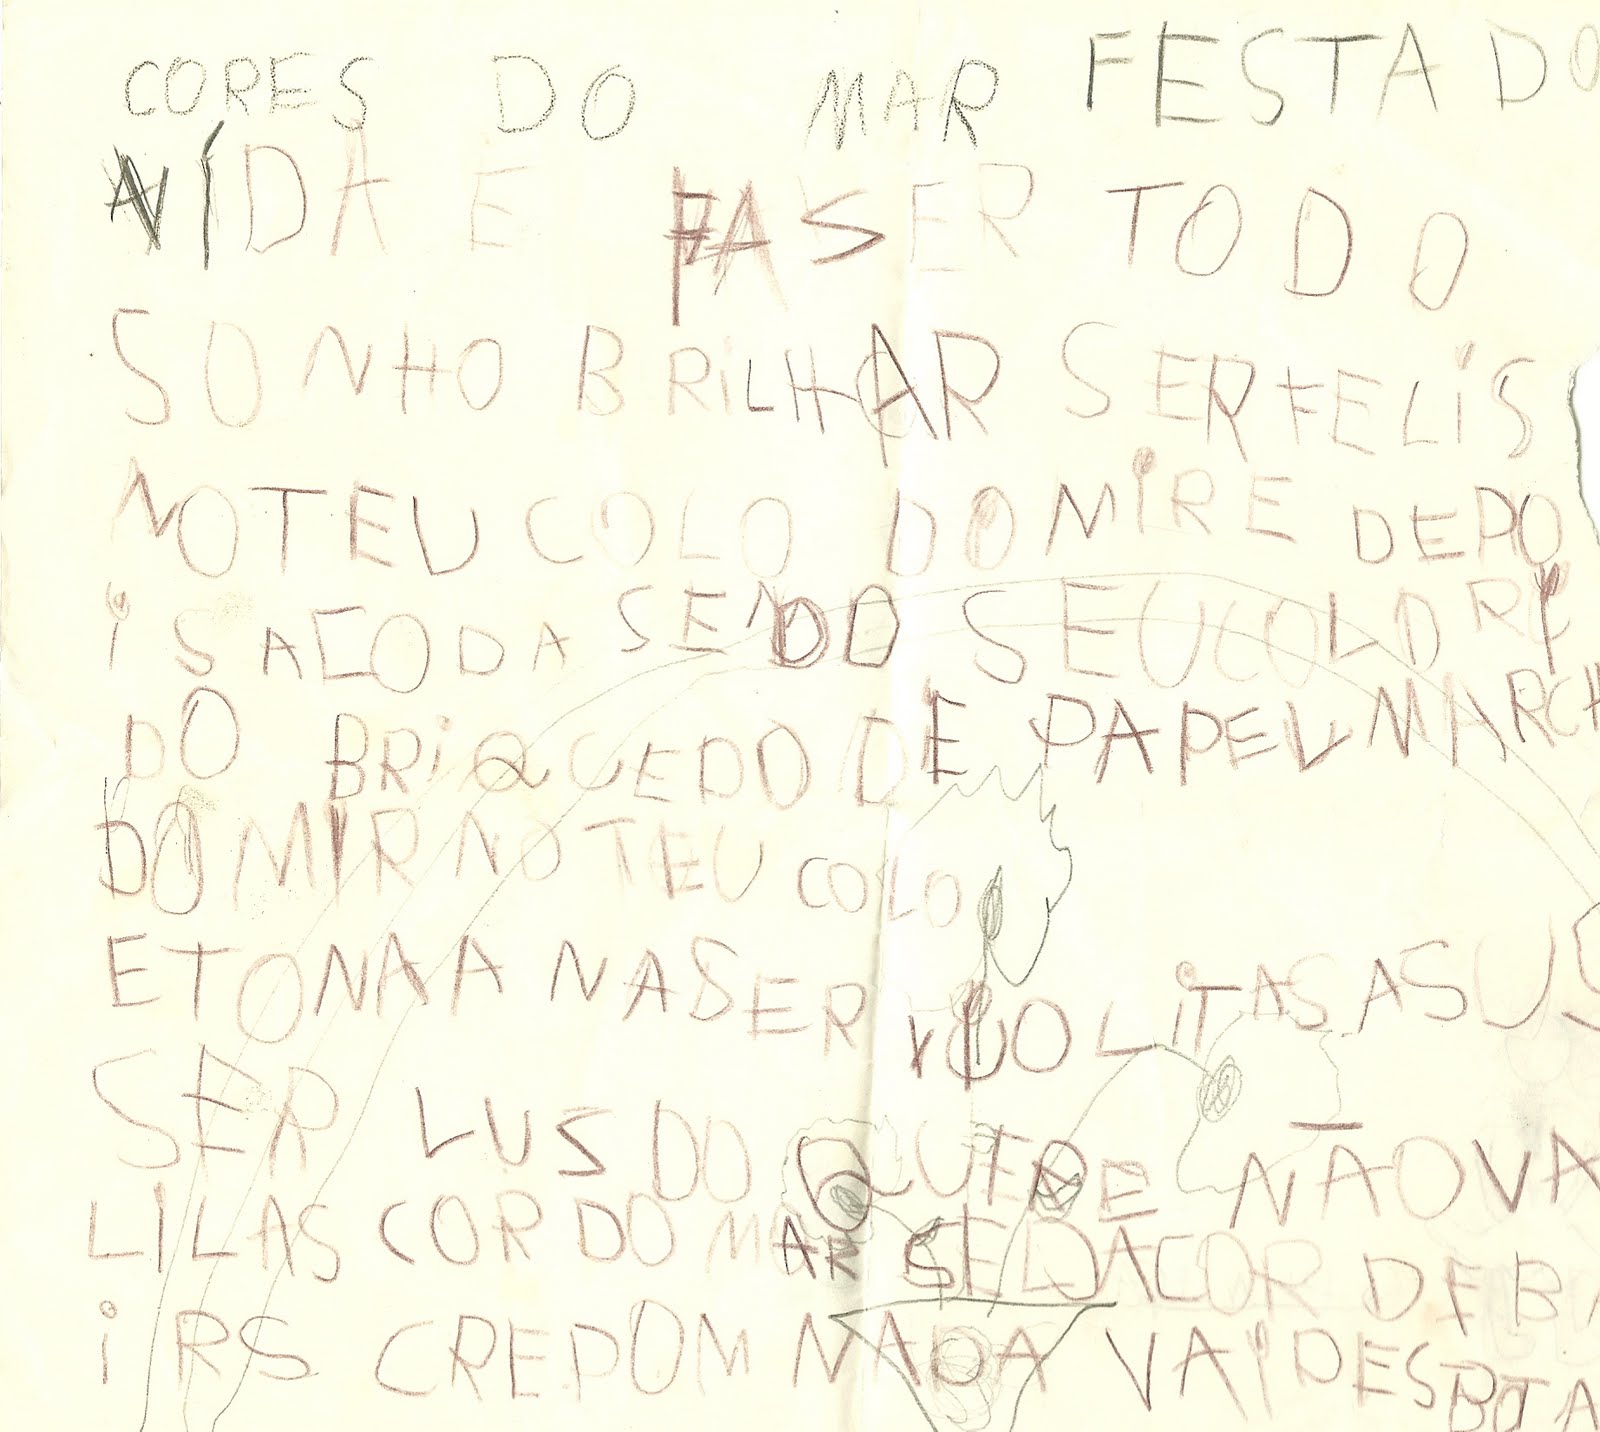 CORES DO MAR FESTA DO
VIDA E FASER TODO
SONHO BRILHAR SER FELIS
NO TEU COLO DOMIRE DEPO
IS ACODA SENDO SEU COLORI
DO BRIQCEDO DE PAPEL MARCH
DOMIR NO TEU COLO
E TONA A NASER VIOLITAS ASUS
SER LUS DO QUERE NÃO VA
LILAS COR DO MAR SEDA COR DE BA
IRS CREPOM NADA VAI DESBOTA